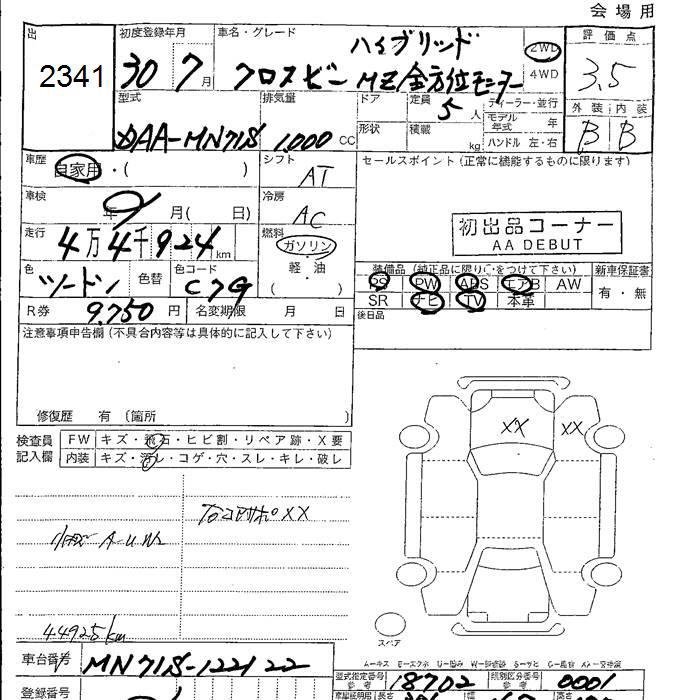 会場用
出 2341
初度登録年月 30 7月
車名・グレード ハイブリッド
クロスビー MZ/全方位モニター
2WD
4WD
評価点 3.5
外装 内装
B B
型式 DAA-MN71S
排気量 1,000 CC
ドア 定員 5人
形状 積載 kg
ディーラー・並行
モデル年式 年
ハンドル 左・右
車歴 自家用・( )
シフト AT
セールスポイント(正常に機能するものに限ります)
車検 年 月( 日)
冷房 AC
初出品コーナー
AA DEBUT
走行 4万4千924km
燃料 ガソリン
軽・油
( )
色 ツートン 色替 色コード C7G
装備品(純正品に限り○をつけて下さい) 新車保証書
PS PW ABS エアB AW 有・無
SR ナビ TV 本革
R券 9,750円 名変期限 月 日
後日品
注意事項申告欄(不具合内容等は具体的に記入して下さい)
修復歴 有(箇所 )
検査員 FW キズ・飛石・ヒビ割・リペア跡・X要
記入欄 内装 キズ・汚レ・コゲ・穴・スレ・キレ・破レ
XX XX
XX
小キズ A-U
44925km
スペア
A-キズ E-エクボ U-凹み W-
車台番号 MN71S-122122
型式指定番号 18702 類別区分番号 0001
登録番号